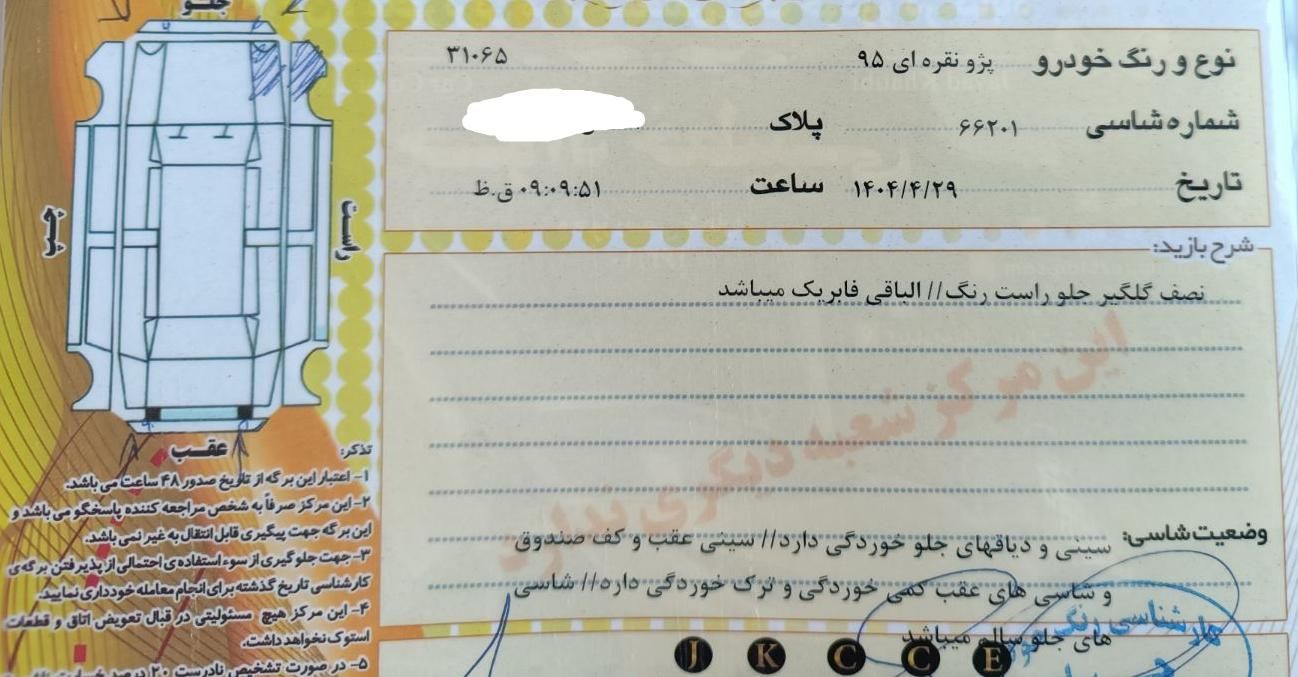 جلو
نوع و رنگ خودرو پژو نقره ای ۹۵ ۳۱۰۶۵
شماره شاسی ۶۶۲۰۱ پلاک
تاریخ ۱۴۰۴/۴/۲۹ ساعت ۰۹:۰۹:۵۱ ق.ظ
راست
چپ
عقب
شرح بازدید:
نصف گلگیر جلو راست رنگ// الباقی فابریک میباشد
این مرکز شعبه دیگری ندارد
وضعیت شاسی: سینی و دیاقهای جلو خوردگی دارد// سینی عقب و کف صندوق
و شاسی های عقب کمی خوردگی و ترک خوردگی دارد// شاسی
های جلو سالم میباشد
کارشناسی رنگ
J K C C E
تذکر:
۱- اعتبار این برگه از تاریخ صدور ۴۸ ساعت می باشد.
۲- این مرکز صرفاً به شخص مراجعه کننده پاسخگو می باشد و
این برگه جهت پیگیری قابل انتقال به غیر نمی باشد.
۳- جهت جلوگیری از سوء استفاده ی احتمالی از پذیرفتن برگه ی
کارشناسی تاریخ گذشته برای انجام معامله خودداری نمایید.
۴- این مرکز هیچ مسئولیتی در قبال تعویض اتاق و قطعات
استوک نخواهد داشت.
۵- در صورت تشخیص نادرست ۲۰ درصد